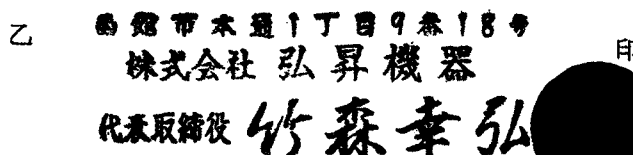 乙
函館市本通1丁目9番18号
株式会社 弘昇機器
印
代表取締役 竹森幸弘